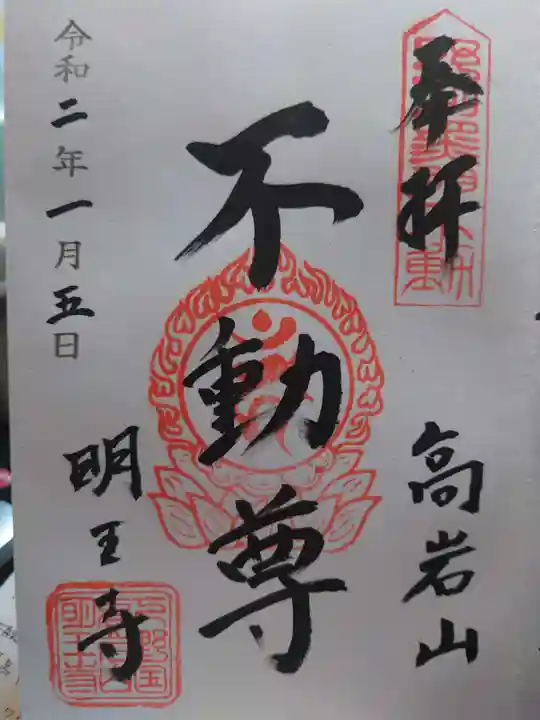 奉拝
高岩山
不動尊
令和二年一月五日
明王寺